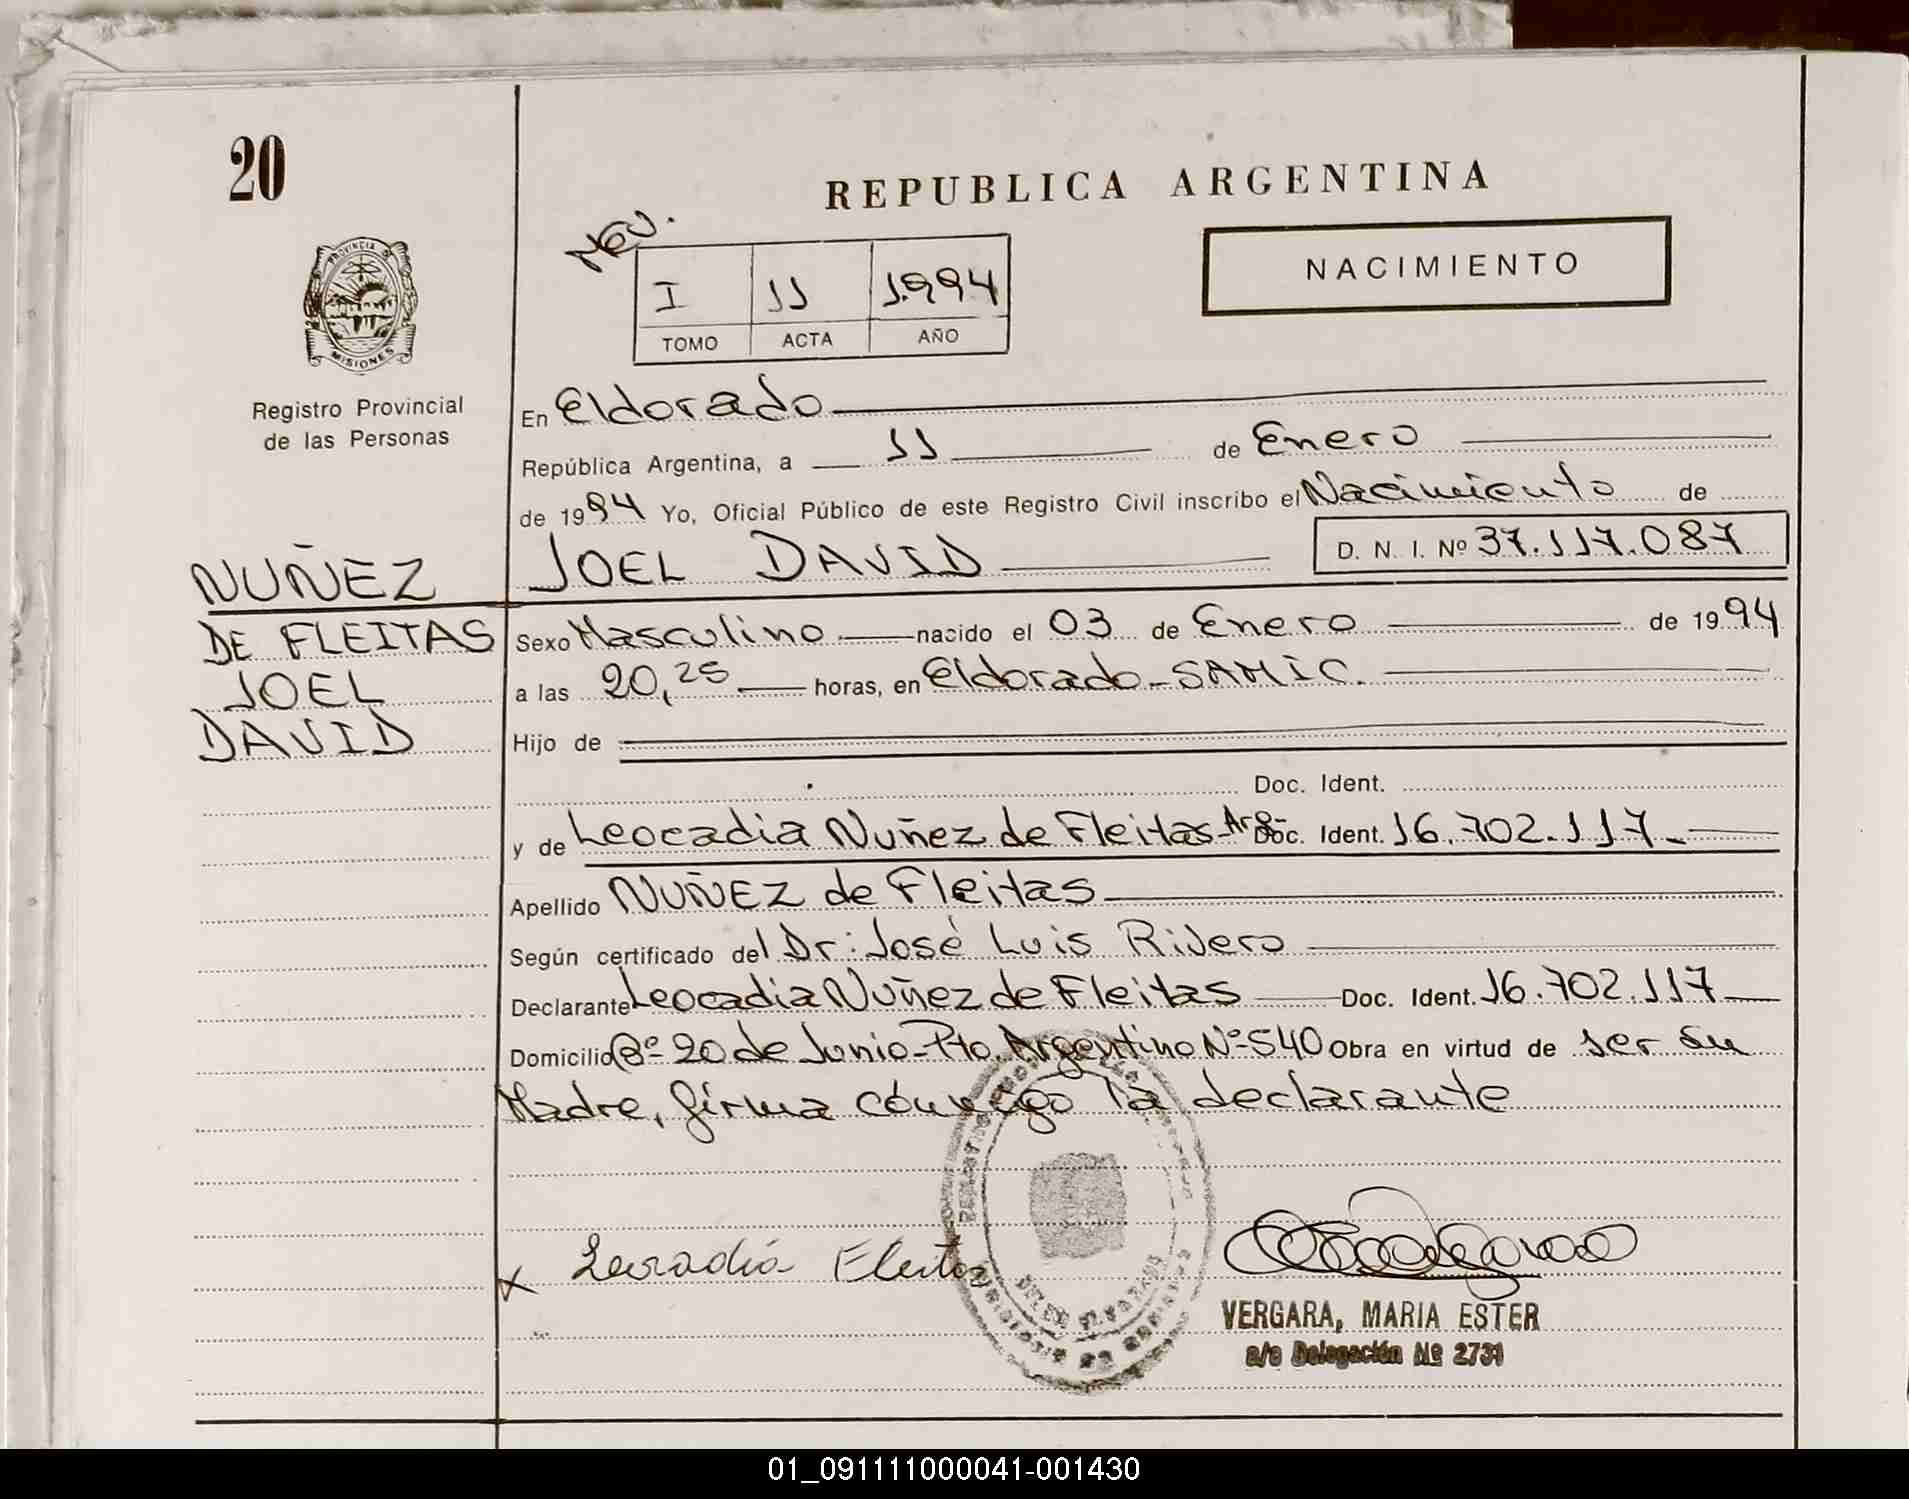 20
REPUBLICA ARGENTINA
NACIMIENTO
I 11 1.994
TOMO ACTA AÑO
PROVINCIA DE
MISIONES
Registro Provincial
de las Personas
En Eldorado
República Argentina, a 11 de Enero
de 1994 Yo, Oficial Público de este Registro Civil inscribo el Nacimiento de
JOEL DAVID D. N. I. Nº 37.117.087
NUÑEZ
DE FLEITAS
JOEL
DAVID
Sexo Masculino nacido el 03 de Enero de 1994
a las 20,25 horas, en Eldorado-SAMIC.
Hijo de
Doc. Ident.
y de Leocadia Nuñez de Fleitas-Arg- Doc. Ident. 16.702.117.-
Apellido NUÑEZ de Fleitas
Según certificado del Dr: José Luis Rivero
Declarante Leocadia Nuñez de Fleitas Doc. Ident. 16.702.117
Domicilio Bº- 20 de Junio-Pto. Argentino Nº-540 Obra en virtud de ser su
Madre, firma conmigo la declarante
x Leocadia Fleitas
VERGARA, MARIA ESTER
a/c Delegación Nº 2731
01_091111000041-001430